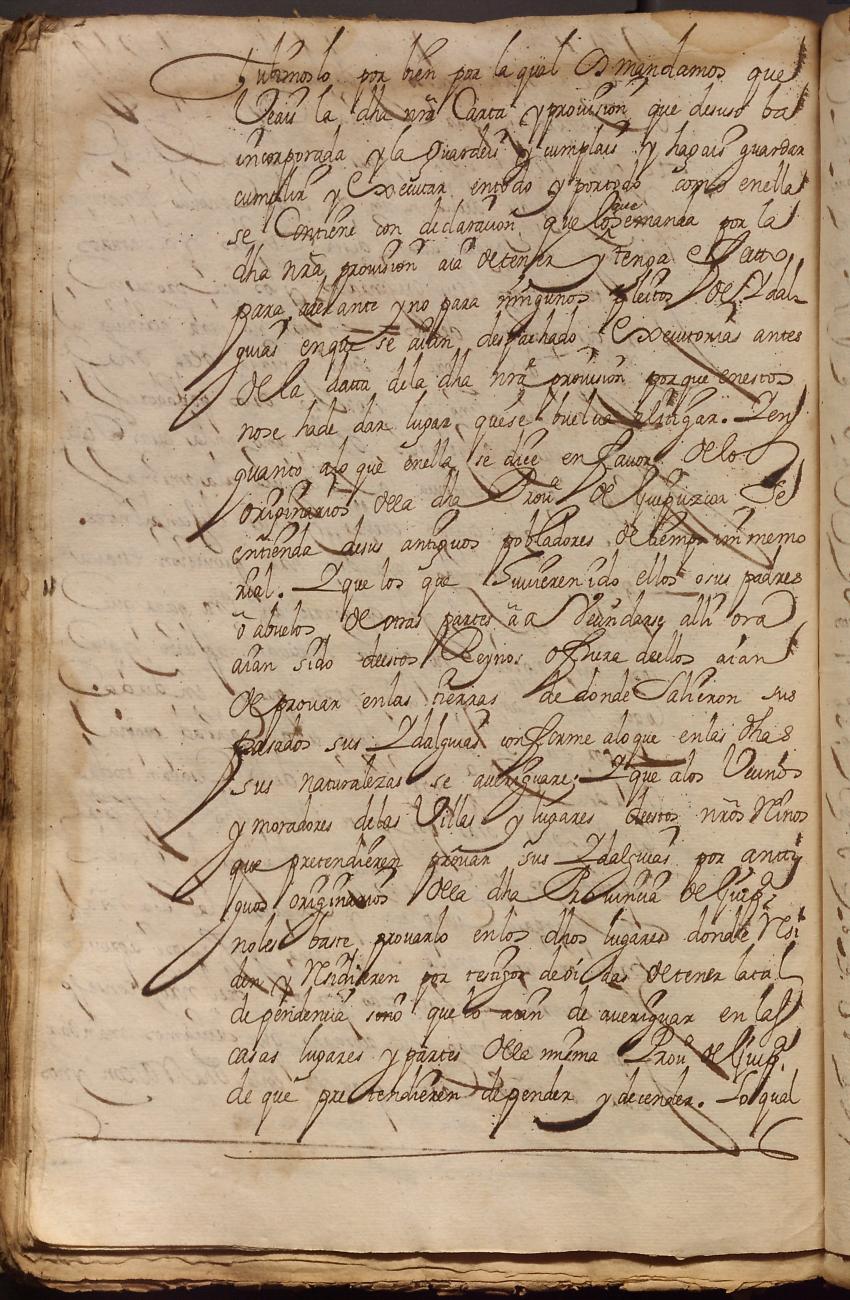 tubimoslo por bien por la qual Os mandamos que
Veais la dha nrã Carta y provision que desuso ba
incorporada y la guardeis y cumplais y hagais guardar
cumplir y Executar entodo y portodo como enella
se Contiene con declaracion que lo que semanda por la
dha nrã provision aia detener y tenga Efecto
para adelante y no para ningunos pleitos de Ydal
guias enque se aian despachado Executorias antes
de la datta dela dha nrã provision porque enestos
nose hade dar lugar quese buelva alitigar. Yen
quanto alo que enella se dice en favor delos
originarios dela dha Prouª de Guipuzcoa Se
entienda desus antiguos pobladores de tiempo immemo
rial. Yque los que huvieren ido ellos osus padres
o abuelos de otras partes a avecindarse alli ora
aian sido destos Reynos o fuera dellos aian
de provar enlas tierras de donde Salieron sus
pasados sus Ydalguias conforme aloque enlas dhas
sus naturalezas se averiguare; Yque alos Vecinos
y moradores delas Villas y lugares destos nrõs Rinos
que pretendieren provar sus Ydalguias por antti
guos originarios dela dha Provincia de Guipª
noles baste provarlo enlos dhos lugares donde Resi
den y Residieren por testigos deoidas detener la tal
dependencia sino que lo aian de averiguar en las
casas lugares y partes dela misma Prouª de Guipª
de que pretendieren depender y decender. Lo qual